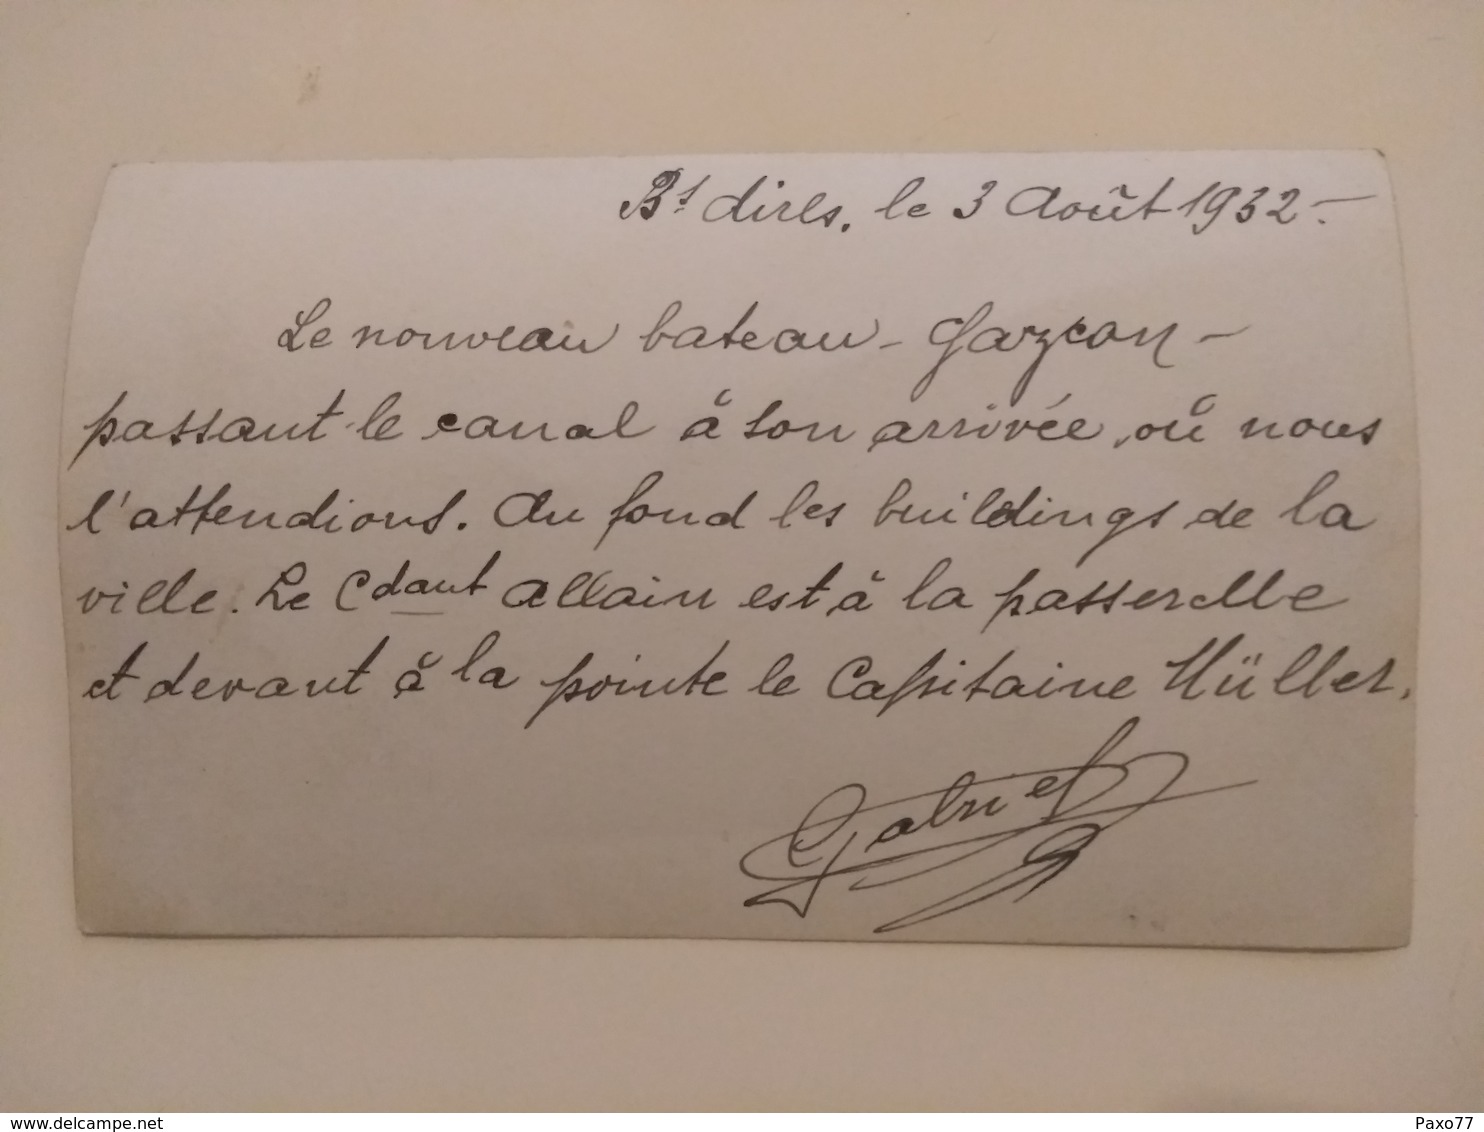 Bs dires, le 3 Août 1932-
Le nouveau bateau - Garzcon -
passant le canal à son arrivée, où nous
l'attendions. Au fond les buildings de la
ville. Le Cdant Allain est à la passerelle
et devant à la pointe le Capitaine Müller.
Gabriel
www.delcampe.net
Paxo77